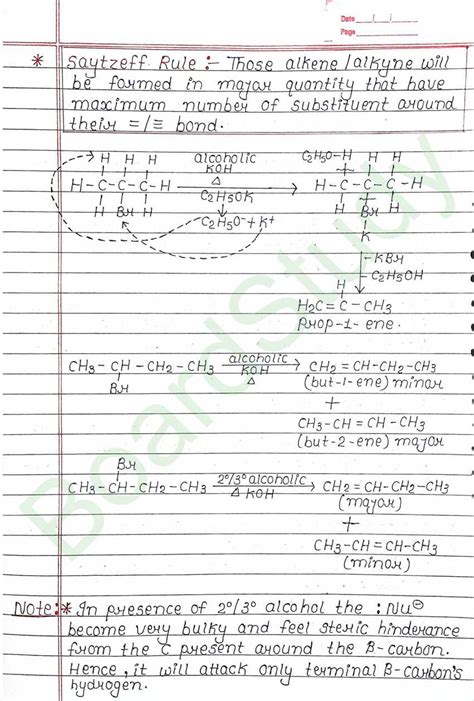 Date __/__/__
Page
* Saytzeff Rule :- Those alkene/alkyne will
be formed in major quantity that have
maximum number of substituent around
their =/≡ bond.
H H H alcoholic C2H5O-H H H
KOH
H-C-C-C-H Δ → H-C-C-C-H
C2H5OK
H Br H H Br H
C2H5O⁻ + K⁺ K
-KBr
-C2H5OH
H
H2C=C-CH3
Prop-1-ene.
CH3-CH-CH2-CH3 alcoholic KOH Δ → CH2=CH-CH2-CH3
Br (but-1-ene) minor
+
CH3-CH=CH-CH3
(but-2-ene) major
Br
CH3-CH-CH2-CH3 2°/3° alcoholic Δ KOH → CH2=CH-CH2-CH3
(major)
+
CH3-CH=CH-CH3
(minor)
Note:* In presence of 2°/3° alcohol the :Nu⊖
become very bulky and feel steric hinderance
from the C present around the β-carbon.
Hence, it will attack only terminal β-carbon's
hydrogen.
BoardStudy